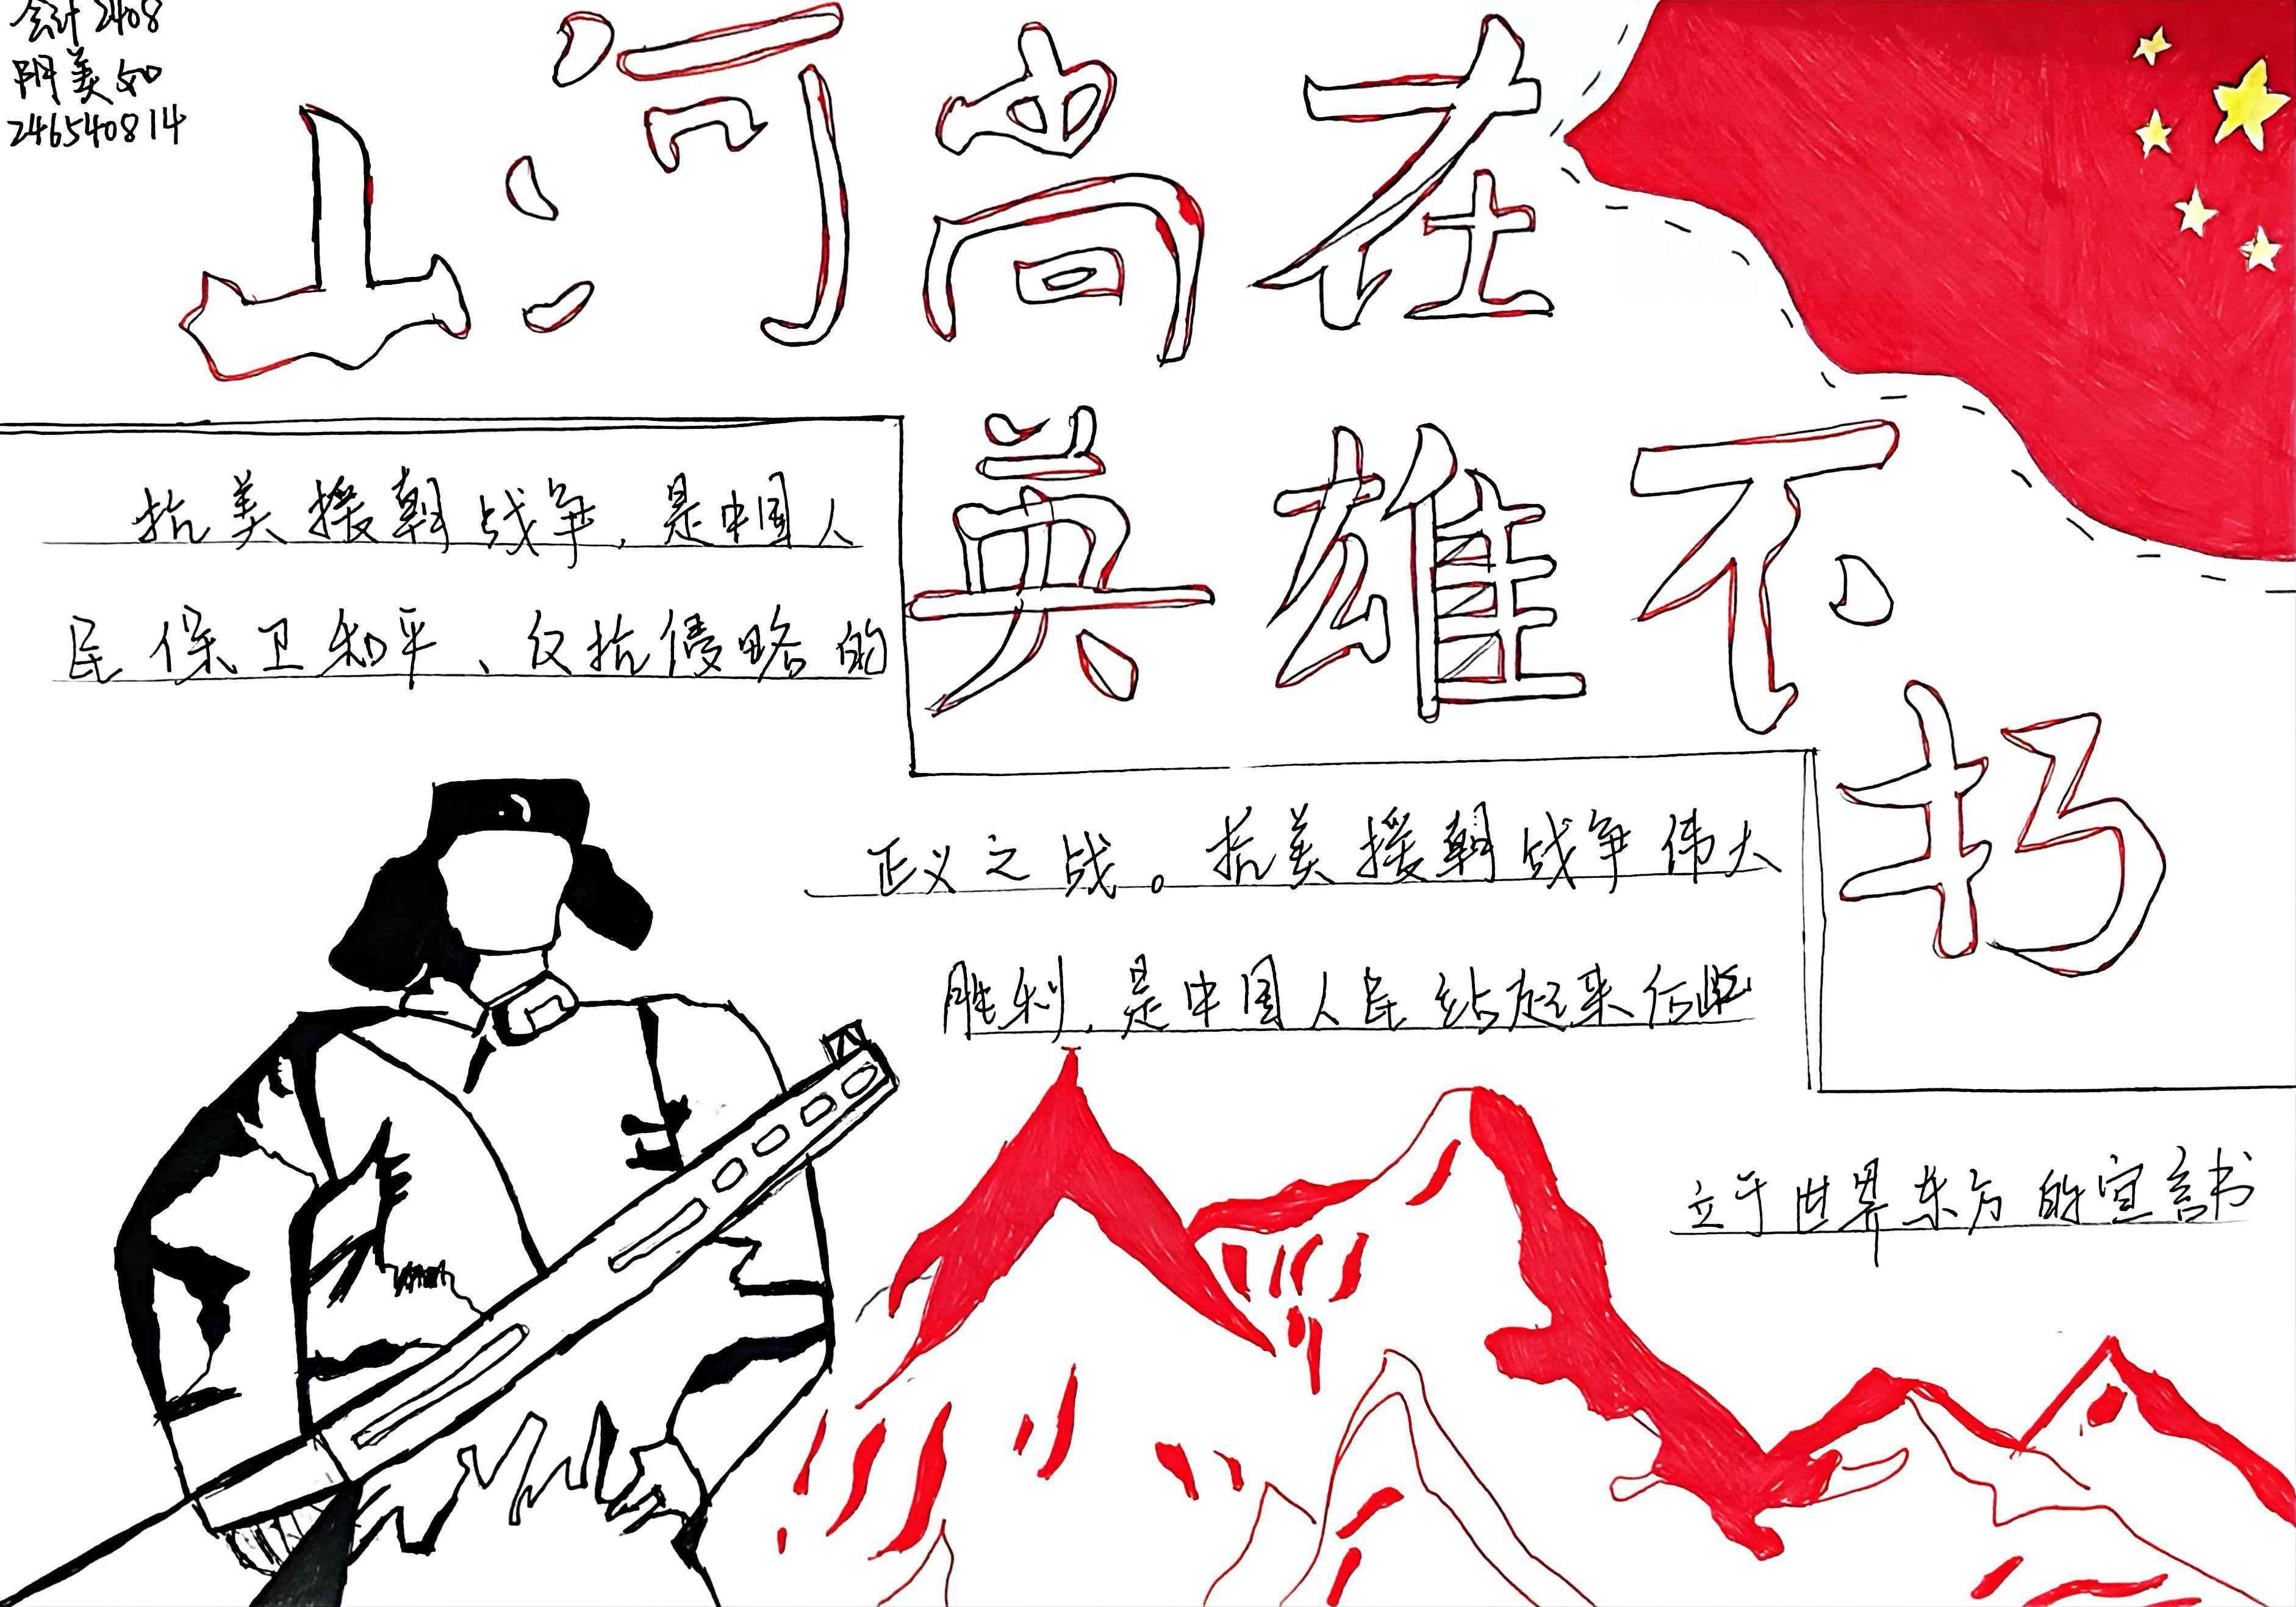 会计2408
阴美如
246540814
山河尚在
英雄不朽
抗美援朝战争，是中国人
民保卫和平、反抗侵略的
正义之战。抗美援朝战争伟大
胜利，是中国人民站起来后屹
立于世界东方的宣言书